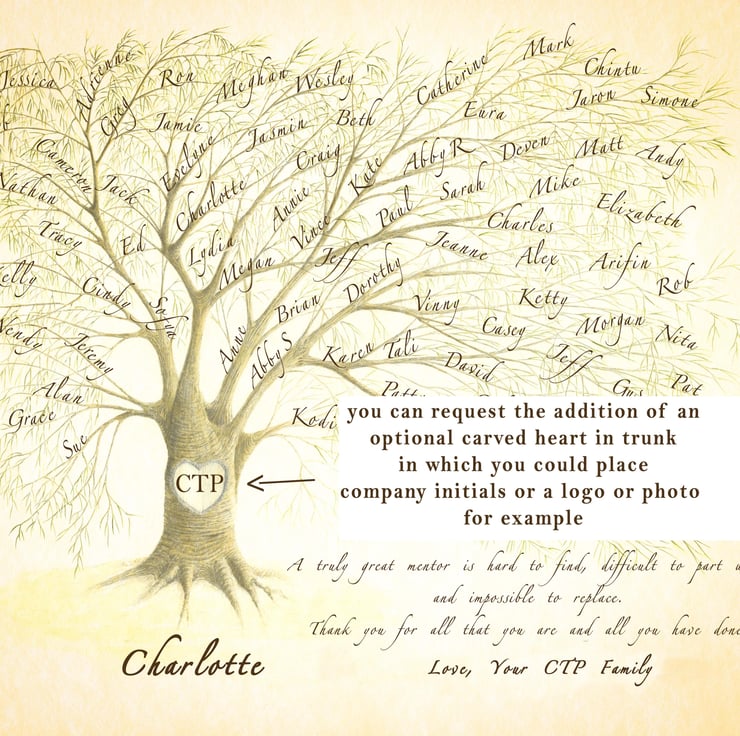 Mark
Adrienne
Jessica
Ron
Meghan
Wesley
Catherine
Chintu
Greg
Jaron
Simone
Jamie
Jasmin
Beth
Eura
Cameron
Evelyne
Craig
Kate
Abby R
Deven
Matt
Andy
Nathan
Jack
Charlotte
Annie
Paul
Sarah
Mike
Elizabeth
Tracy
Ed
Lydia
Vince
Charles
Megan
Jeff
Jeanne
Alex
Arifin
elly
Cindy
Sofya
Brian
Dorothy
Vinny
Ketty
Rob
Wendy
Jeremy
Anne
Abby S
Karen
Tali
Casey
Morgan
Nita
David
Jeff
Alan
Patty
Gus
Pat
Grace
Sue
Kodi
you can request the addition of an
optional carved heart in trunk
in which you could place
company initials or a logo or photo
for example
CTP
A truly great mentor is hard to find, difficult to part
and impossible to replace.
Thank you for all that you are and all you have done
Charlotte
Love, Your CTP Family